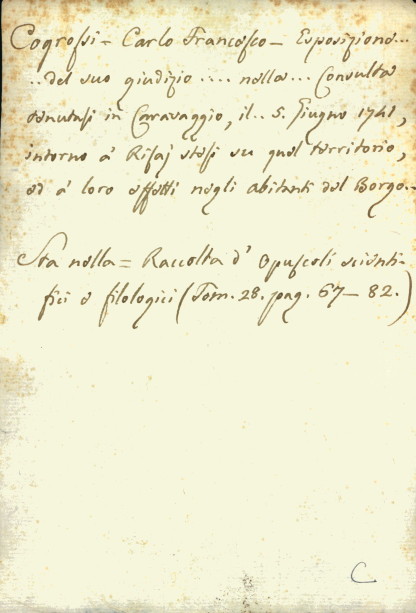 Cogrossi = Carlo Francesco - Esposizione...
..del suo giudizio .... nella... Consulta
tenutasi in Caravaggio, il.. 5. Giugno 1741,
intorno à Risaj stesi su quel territorio,
ed à loro effetti negli abitanti del Borgo.-
Sta nella = Raccolta d' Opuscoli scienti-
fici e filologici (Tom. 28. pag. 67- 82.)
C